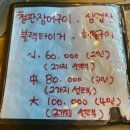 철판장어구이, 삼겹살
블랙타이거, 
小 60.000 (2인)
(2가지 선택)
中 80.000 (3인)
(2가지 선택)
大 100.000 (4인)
(3가지 선택)